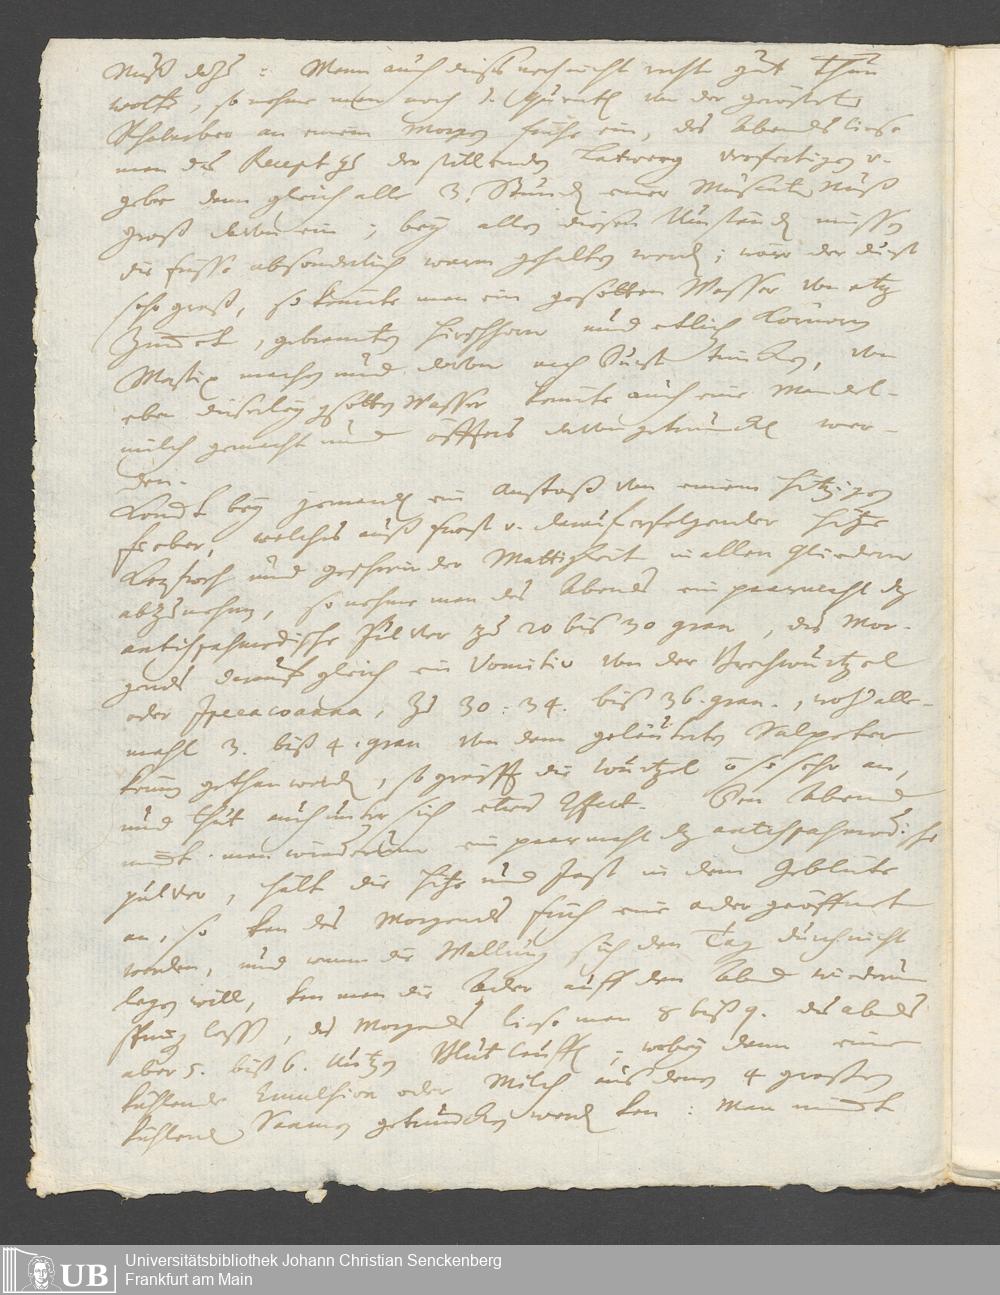 Nuß dazu: Wann auch dieses noch nicht recht gut thun
wolte, so nehme man noch 1. Quentl von der gerösteten
Rhabarber an einem Morgen frühe ein, des Abends liese
man das Recept zu der stillenden Latwerg verfertigen u.
gebe dann gleich alle 3. Stund einer Muscat Nuß
groß davon ein; bey allen diesen Umständen müssen
die Füsse absonderlich warm gehalten werden; wäre der durst
sehr groß, so könnte man ein gesotten Wasser von etw
Zimmet, gebrannten Hirschhorn und etlich Körnern
Mastix machen und davon nach Durst trincken, von
eben dieserley gsotten Wasser könnte auch eine Mandel-
milch gemacht und öffters davon getruncken wer-
den.
Komt bey jemand ein Anstoß von einem hitzigen
fieber, welches auß Frost u. darauf erfolgender Hitze
Kopfweh und geschwinder Mattigkeit in allen Gliedern
abzunehmen, so nehme man des Abends ein paarmahl das
antispasmodische Pulver zu 20 bis 30 gran, des Mor-
gends darauf gleich ein Vomitiv von der Brechwurtzel
oder Ipecacoanna, zu 30: 34. biß 36. gran., wozu alle-
mahl 3. biß 4. gran von dem geläuterten Salpeter
kan gethan werden, so greifft die Wurtzel nit so sehr an,
und thut auch unter sich etwas Effect. Den Abend
nimmt man wiederum ein paarmahl das antispasmodische
pulver, hält die Hitze und Jast in dem Geblüte
an, so kan des Morgends früh eine ader geöffnet
werden, und wann die Wallung sich den Tag durch nicht
legen will, kan man die Ader auff den Abend wiederum
spring lassen, des Morgends liese man 8 biß 9. des abends
aber 5. biß 6. Untzen Blut lauffen; wobey dann eine
kühlende Emulsion oder Milch aus denen 4 grossen
kühlend Saamen getruncken werden kan: Man nimmt
Universitätsbibliothek Johann Christian Senckenberg
Frankfurt am Main
UB